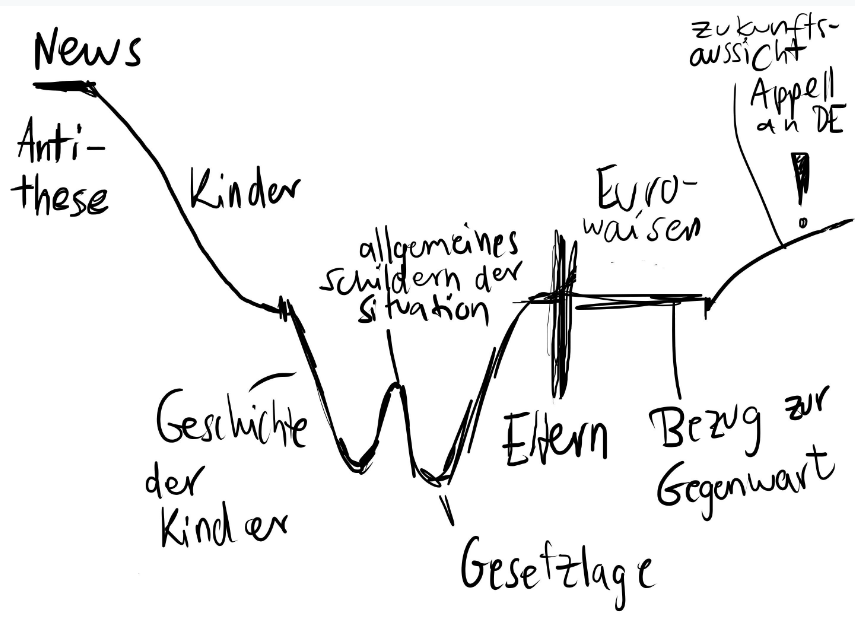 News
Anti-
these
Kinder
allgemeines
schildern der
situation
Geschichte
der
Kinder
Gesetzlage
Eltern
Euro-
waisen
Bezug zur
Gegenwart
zukunfts-
aussicht
Appell
an DE
!